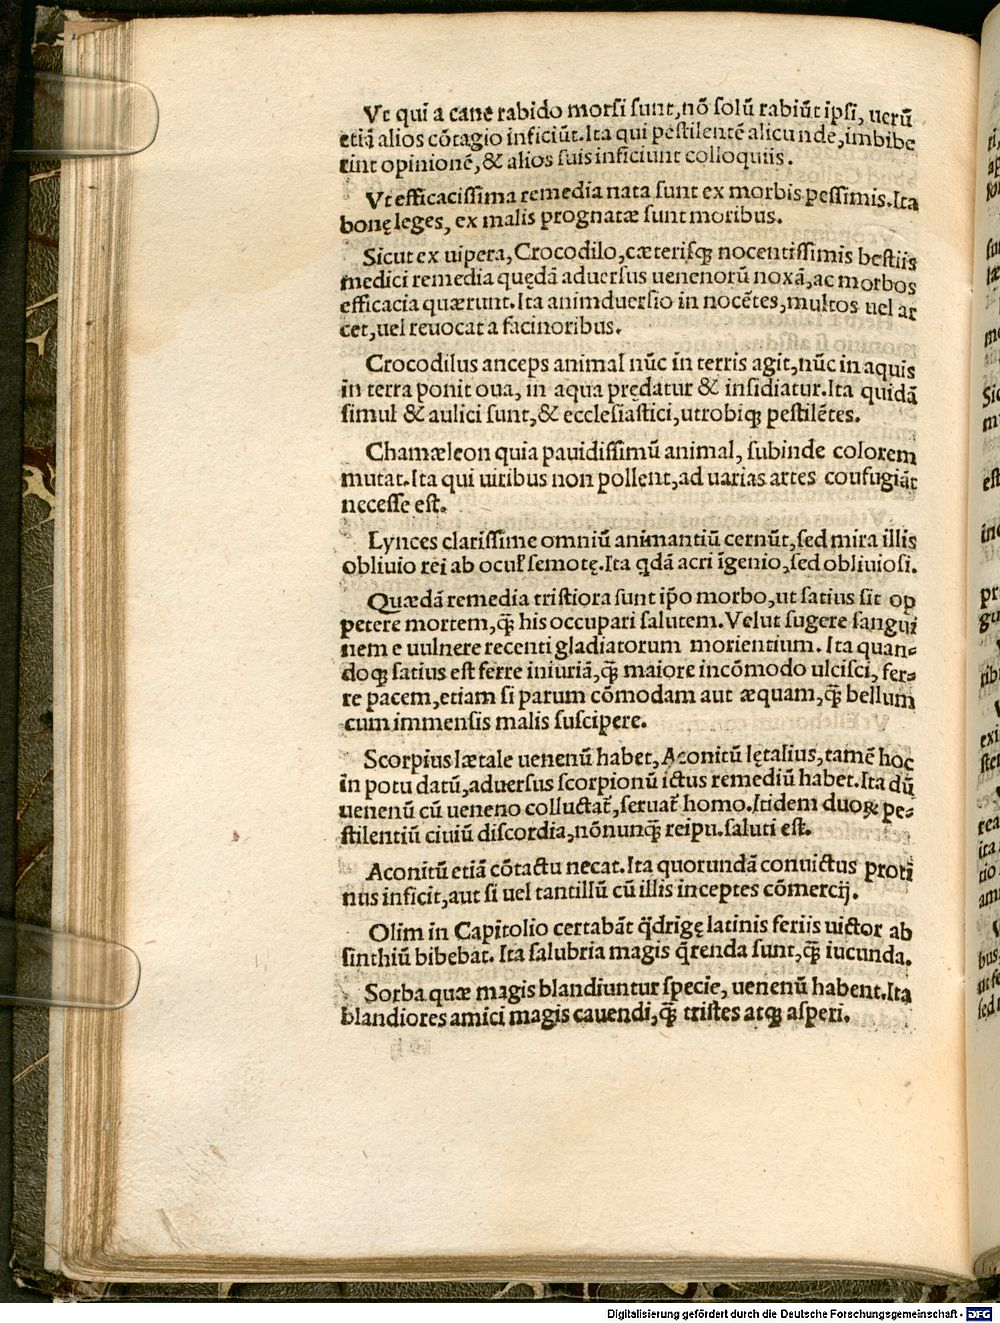 Vt qui a cane rabido morsi sunt, nō solū rabiūt ipsi, uerū
etiā alios cōtagio inficiūt. Ita qui pestilentē alicunde, imbibe
rint opinionē, & alios suis inficiunt colloquiis.
Vt efficacissima remedia nata sunt ex morbis pessimis. Ita
bonę leges, ex malis prognatæ sunt moribus.
Sicut ex uipera, Crocodilo, cæterisꝙ nocentissimis bestiis
medici remedia quędā aduersus uenenorū noxā, ac morbos
efficacia quærunt. Ita animduersio in nocētes, multos uel ar
cet, uel reuocat a facinoribus.
Crocodilus anceps animal nūc in terris agit, nūc in aquis
in terra ponit oua, in aqua prędatur & insidiatur. Ita quidā
simul & aulici sunt, & ecclesiastici, utrobiqꝫ pestilētes.
Chamæleon quia pauidissimū animal, subinde colorem
mutat. Ita qui uiribus non pollent, ad uarias artes confugiāt
necesse est.
Lynces clarissime omniū animantiū cernūt, sed mira illis
obliuio rei ab ocul' semotę. Ita qdā acri īgenio, sed obliuiosi.
Quædā remedia tristiora sunt ip̄o morbo, ut satius sit op
petere mortem, q̄ꝫ his occupari salutem. Velut sugere sangui
nem e uulnere recenti gladiatorum morientium. Ita quan-
doqꝫ satius est ferre iniuriā, q̄ꝫ maiore incōmodo ulcisci, fer-
re pacem, etiam si parum cōmodam aut æquam, q̄ꝫ bellum
cum immensis malis suscipere.
Scorpius lætale uenenū habet, Aconitū lętalius, tamē hoc
in potu datū, aduersus scorpionū ictus remediū habet. Ita dū
uenenū cū ueneno colluctat̄, seruat̄ homo. Itidem duoꝝ pe-
stilentiū ciuiū discordia, nōnunq̄ꝫ reipu. saluti est.
Aconitū etiā cōtactu necat. Ita quorundā conuictus proti
nus inficit, aut si uel tantillū cū illis inceptes cōmercij.
Olim in Capitolio certabāt q̄drigę latinis feriis uictor ab
sinthiū bibebat. Ita salubria magis q̄renda sunt, q̄ꝫ iucunda.
Sorba quæ magis blandiuntur specie, uenenū habent. Ita
blandiores amici magis cauendi, q̄ꝫ tristes atqꝫ asperi.
Digitalisierung gefördert durch die Deutsche Forschungsgemeinschaft - DFG